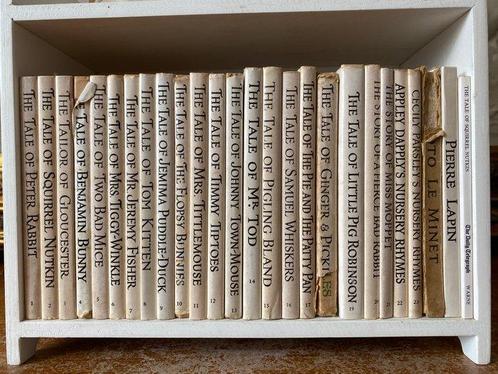 THE TALE OF PETER RABBIT
1
THE TALE OF SQUIRREL NUTKIN
2
THE TAILOR OF GLOUCESTER
3
THE TALE OF BENJAMIN BUNNY
4
THE TALE OF TWO BAD MICE
5
THE TALE OF MRS TIGGY-WINKLE
6
THE TALE OF MR JEREMY FISHER
7
THE TALE OF TOM KITTEN
8
THE TALE OF JEMIMA PUDDLE-DUCK
9
THE TALE OF THE FLOPSY BUNNIES
10
THE TALE OF MRS TITTLEMOUSE
11
THE TALE OF TIMMY TIPTOES
12
THE TALE OF JOHNNY TOWN-MOUSE
13
THE TALE OF MR TOD
14
THE TALE OF PIGLING BLAND
15
THE TALE OF SAMUEL WHISKERS
16
THE TALE OF THE PIE AND THE PATTY PAN
17
THE TALE OF GINGER & PICKLES
THE TALE OF LITTLE PIG ROBINSON
19
THE STORY OF A FIERCE BAD RABBIT
20
THE STORY OF MISS MOPPET
21
APPLEY DAPPLY'S NURSERY RHYMES
22
CECILY PARSLEY'S NURSERY RHYMES
23
TO LE MINET
PIERRE LAPIN
THE TALE OF SQUIRREL NUTKIN
The Daily Telegraph
WARNE